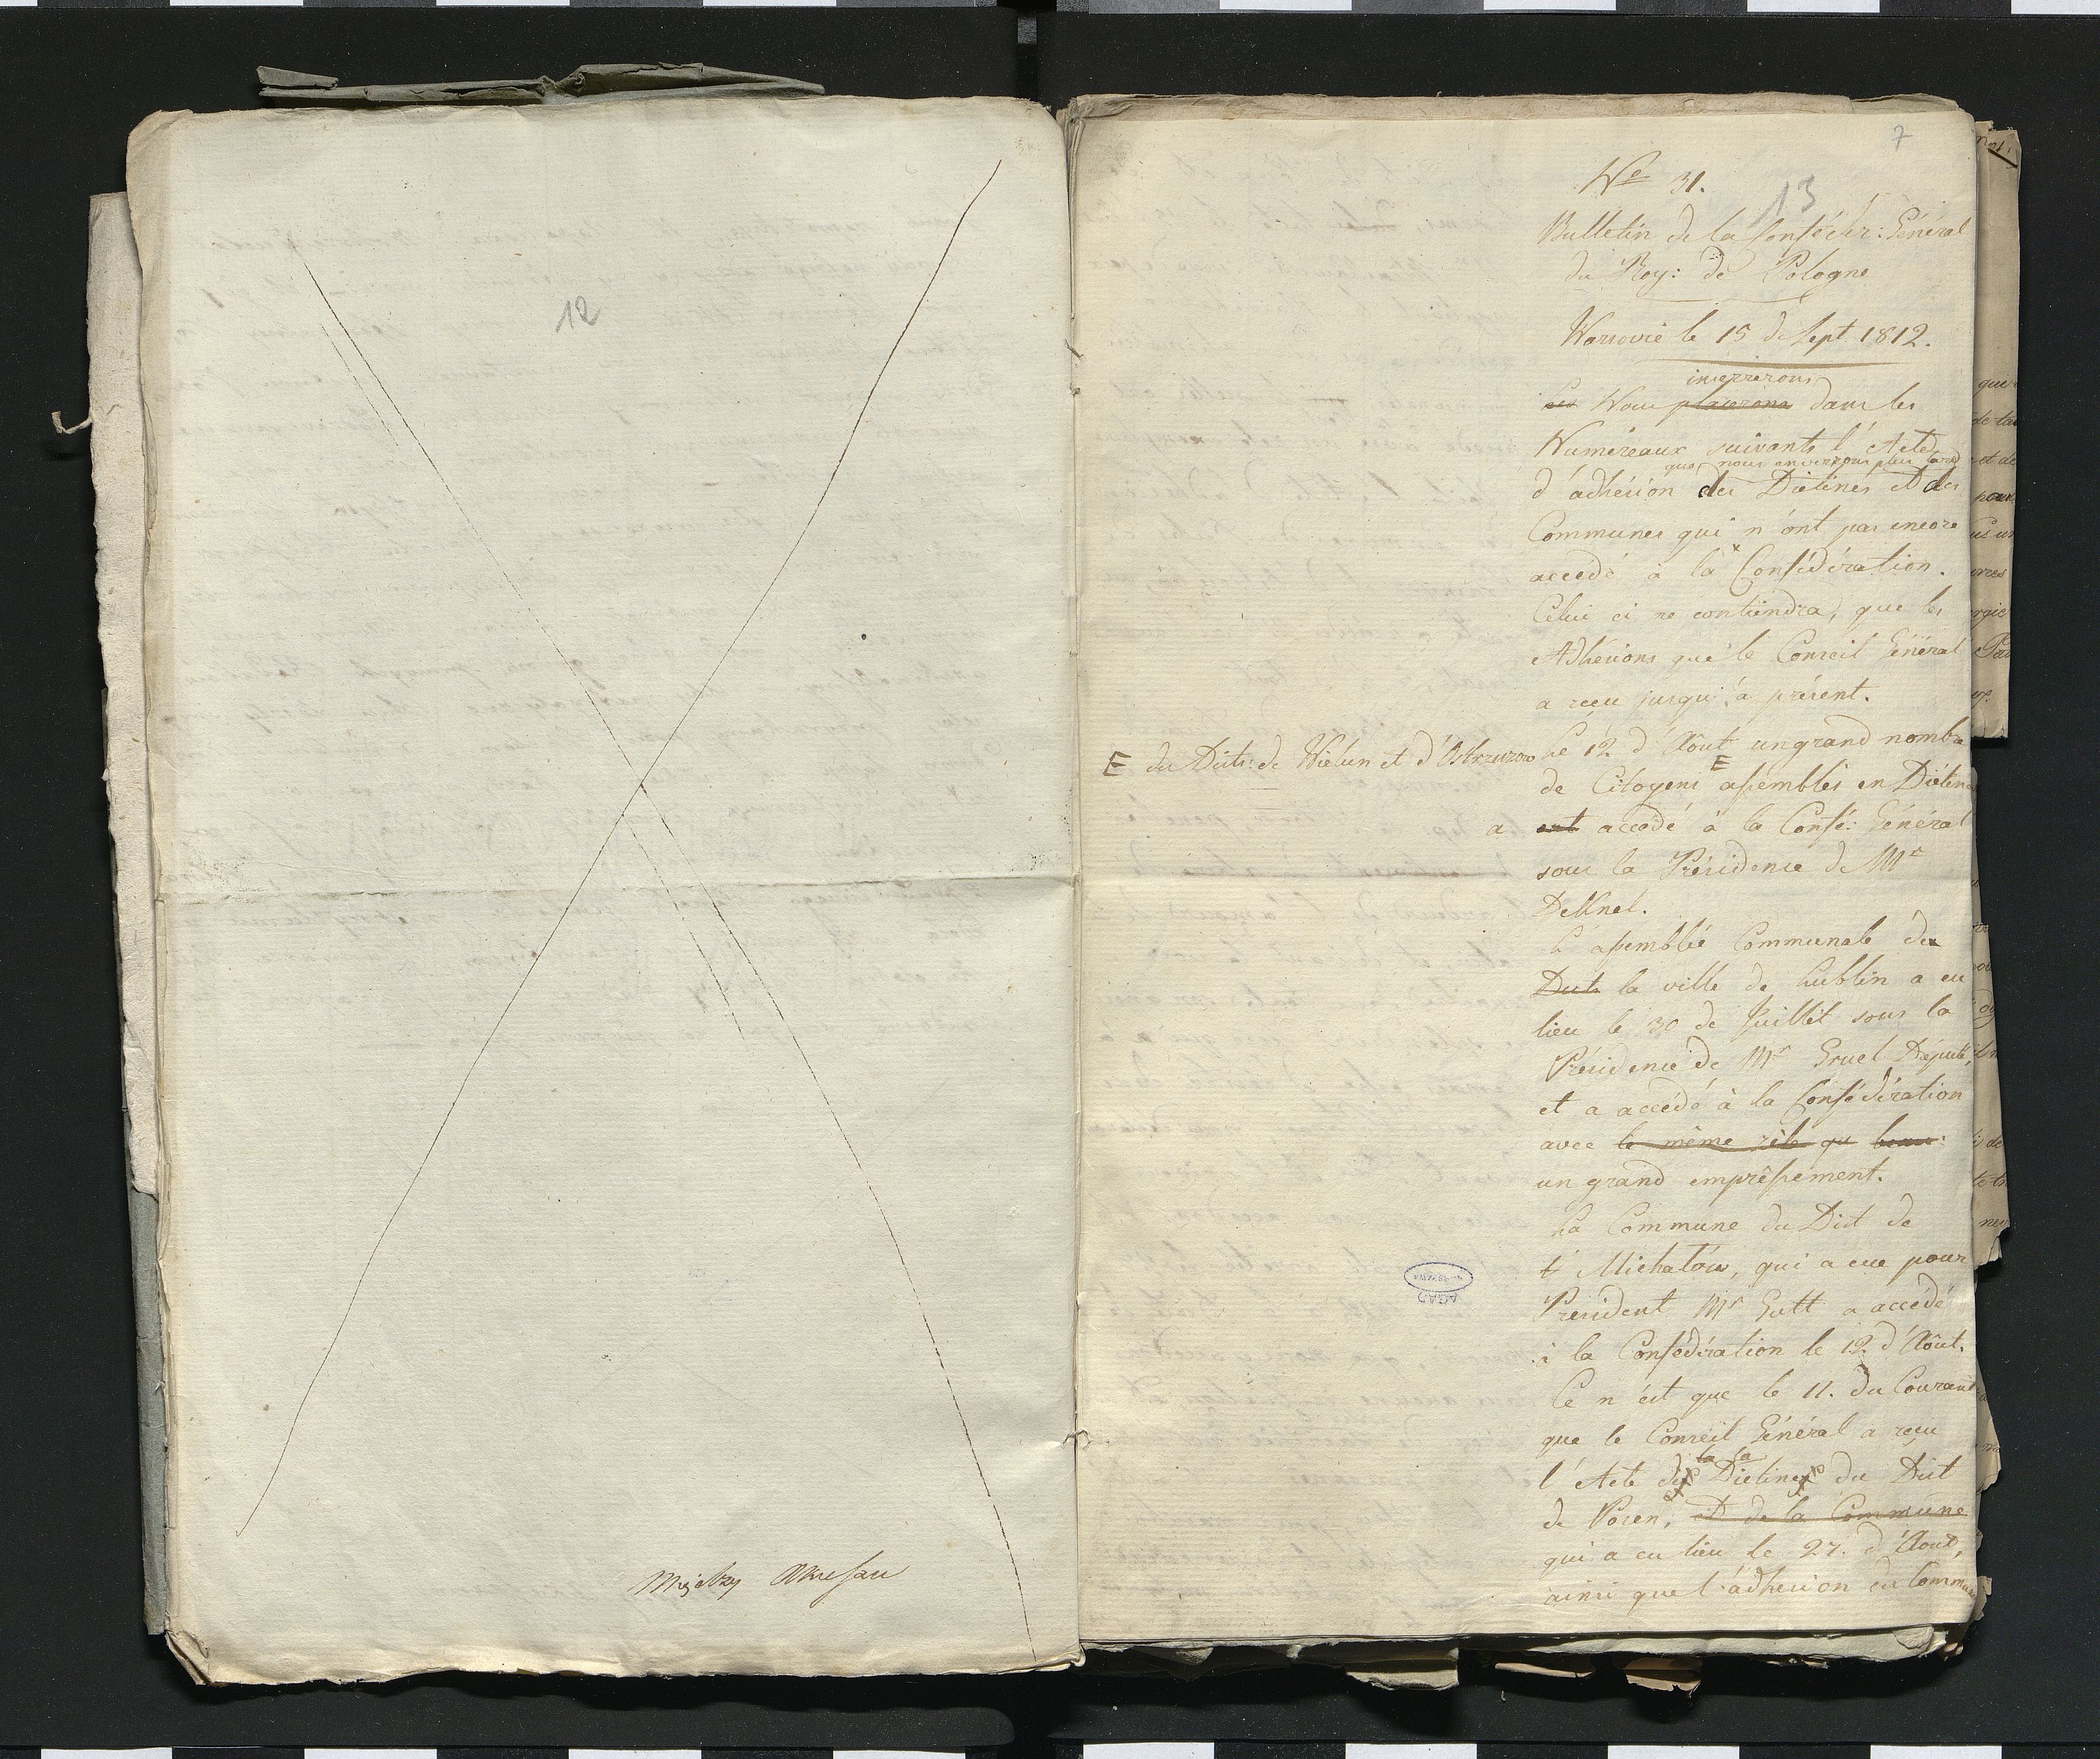 12
7
13
No 31.
Bulletin de la Confédér: Général
du Roy: de Pologne
Varsovie le 15 de Sept 1812.
inserrerons
Les Nous placerons dans les
Numéreaux suivants l'Acte
que nous enverrons plus tard
d'adhésion des Dietines et des
Communes qui n'ont pas encore
accédé à la Confédération.
Celui ci ne contiendra, que les
Adhesions que le Conseil Général
a reçu jusqu'à présent.
E du Distr: de Wielun et d'Ostrzeszow
Le 12 d'Août un grand nombre
E
de Citogens assemblés en Diétine
a ont accédé à la Confé: Général
sous la Présidence de Mr
L'assemblée Communale de
Distr la ville de Lublin a eu
lieu le 30 de Juillet sous la
Présidence de Mr Gruel Député,
et a accédé à la Confédération
avec le même zèle qu beau:
un grand empréssement.
La Commune du Dist de
Michałów, qui a eue pour
President Mr Gutt a accédé
à la Confédération le 12. d'Août.
Ce n'est que le 11. du Courant
que le Conseil Général a reçu
la
l'Acte des Dietines du Dist
de Posen, et de la Commune
qui a eu lieu le 27. d'Aout,
ainsi que l'adhesion du Commun
AGAD
WARSZAWA